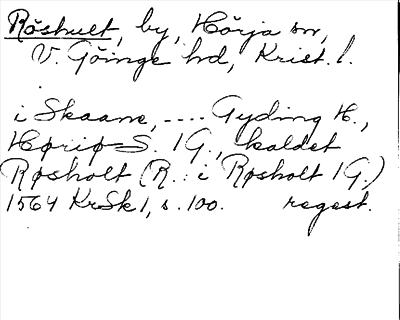 Röshult, by, Hörja sn,
V. Göinge hd, Krist. l.
i Skaane, .... Gyding H.,
Høriø S. 1 G., kaldet
Røsholt (R. : i Røsholt 1 G.)
1564 KrSk 1, s. 100. regest.